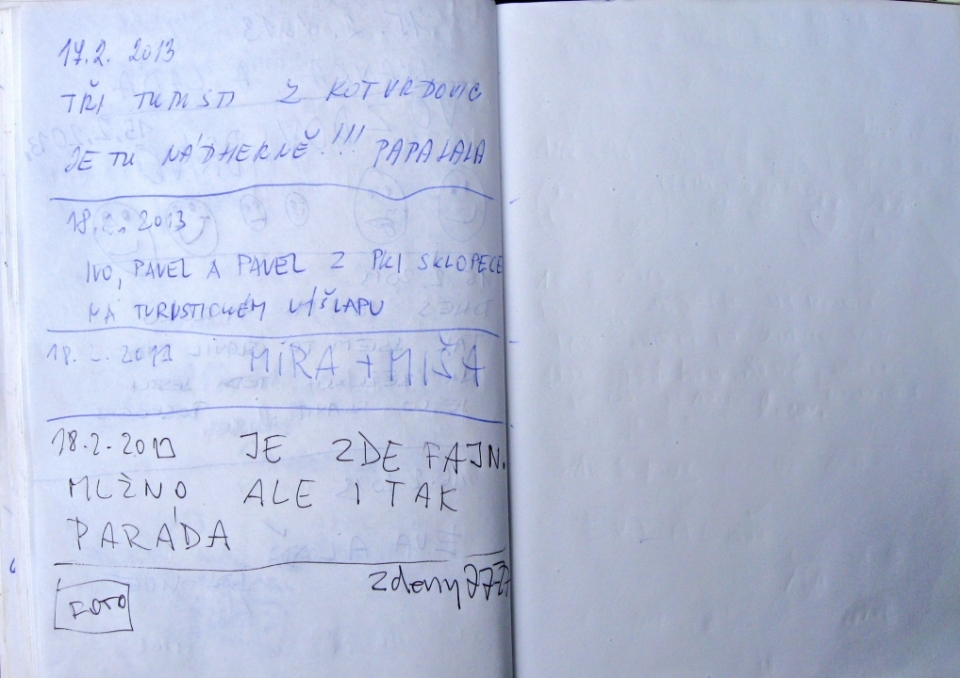 17.2. 2013
TŘI TURISTI Z KOTVRDOVIC
JE TU NÁDHERNĚ!!! PAPALALA
18.2. 2013
IVO, PAVEL A PAVEL Z PKI SKLOPECE
NA TURISTICKÉM VÝŠLAPU
18. 2. 201
MÍRA + MIŠA
18.2.201 JE ZDE FAJN.
MLŽNO ALE I TAK
PARÁDA
Zdeny
FOTO